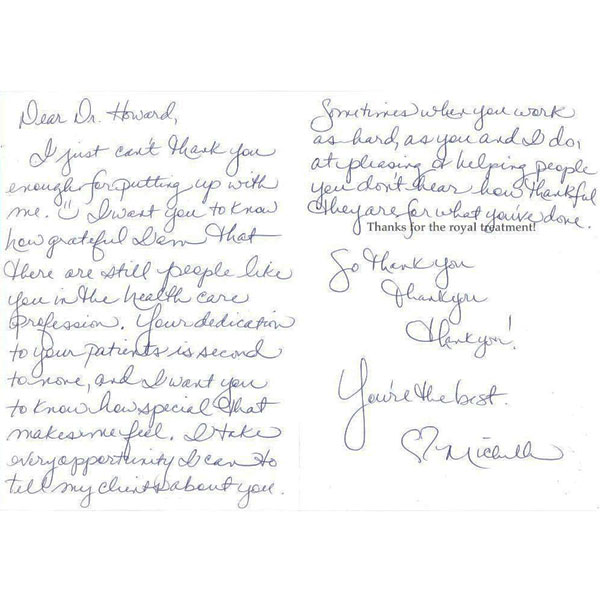 Dear Dr. Howard,
I just can't thank you
enough for putting up with
me. I want you to know
how grateful I am that
there are still people like
you in the health care
profession. Your dedication
to your patients is second
to none, and I want you
to know how special that
makes me feel. I take
every opportunity I can to
tell my clients about you.
Sometimes when you work
as hard, as you and I do,
at pleasing & helping people
you don't hear how thankful
they are for what you've done.
Thanks for the royal treatment!
So thank you
thank you
thank you!
You're the best.
♡ Michelle